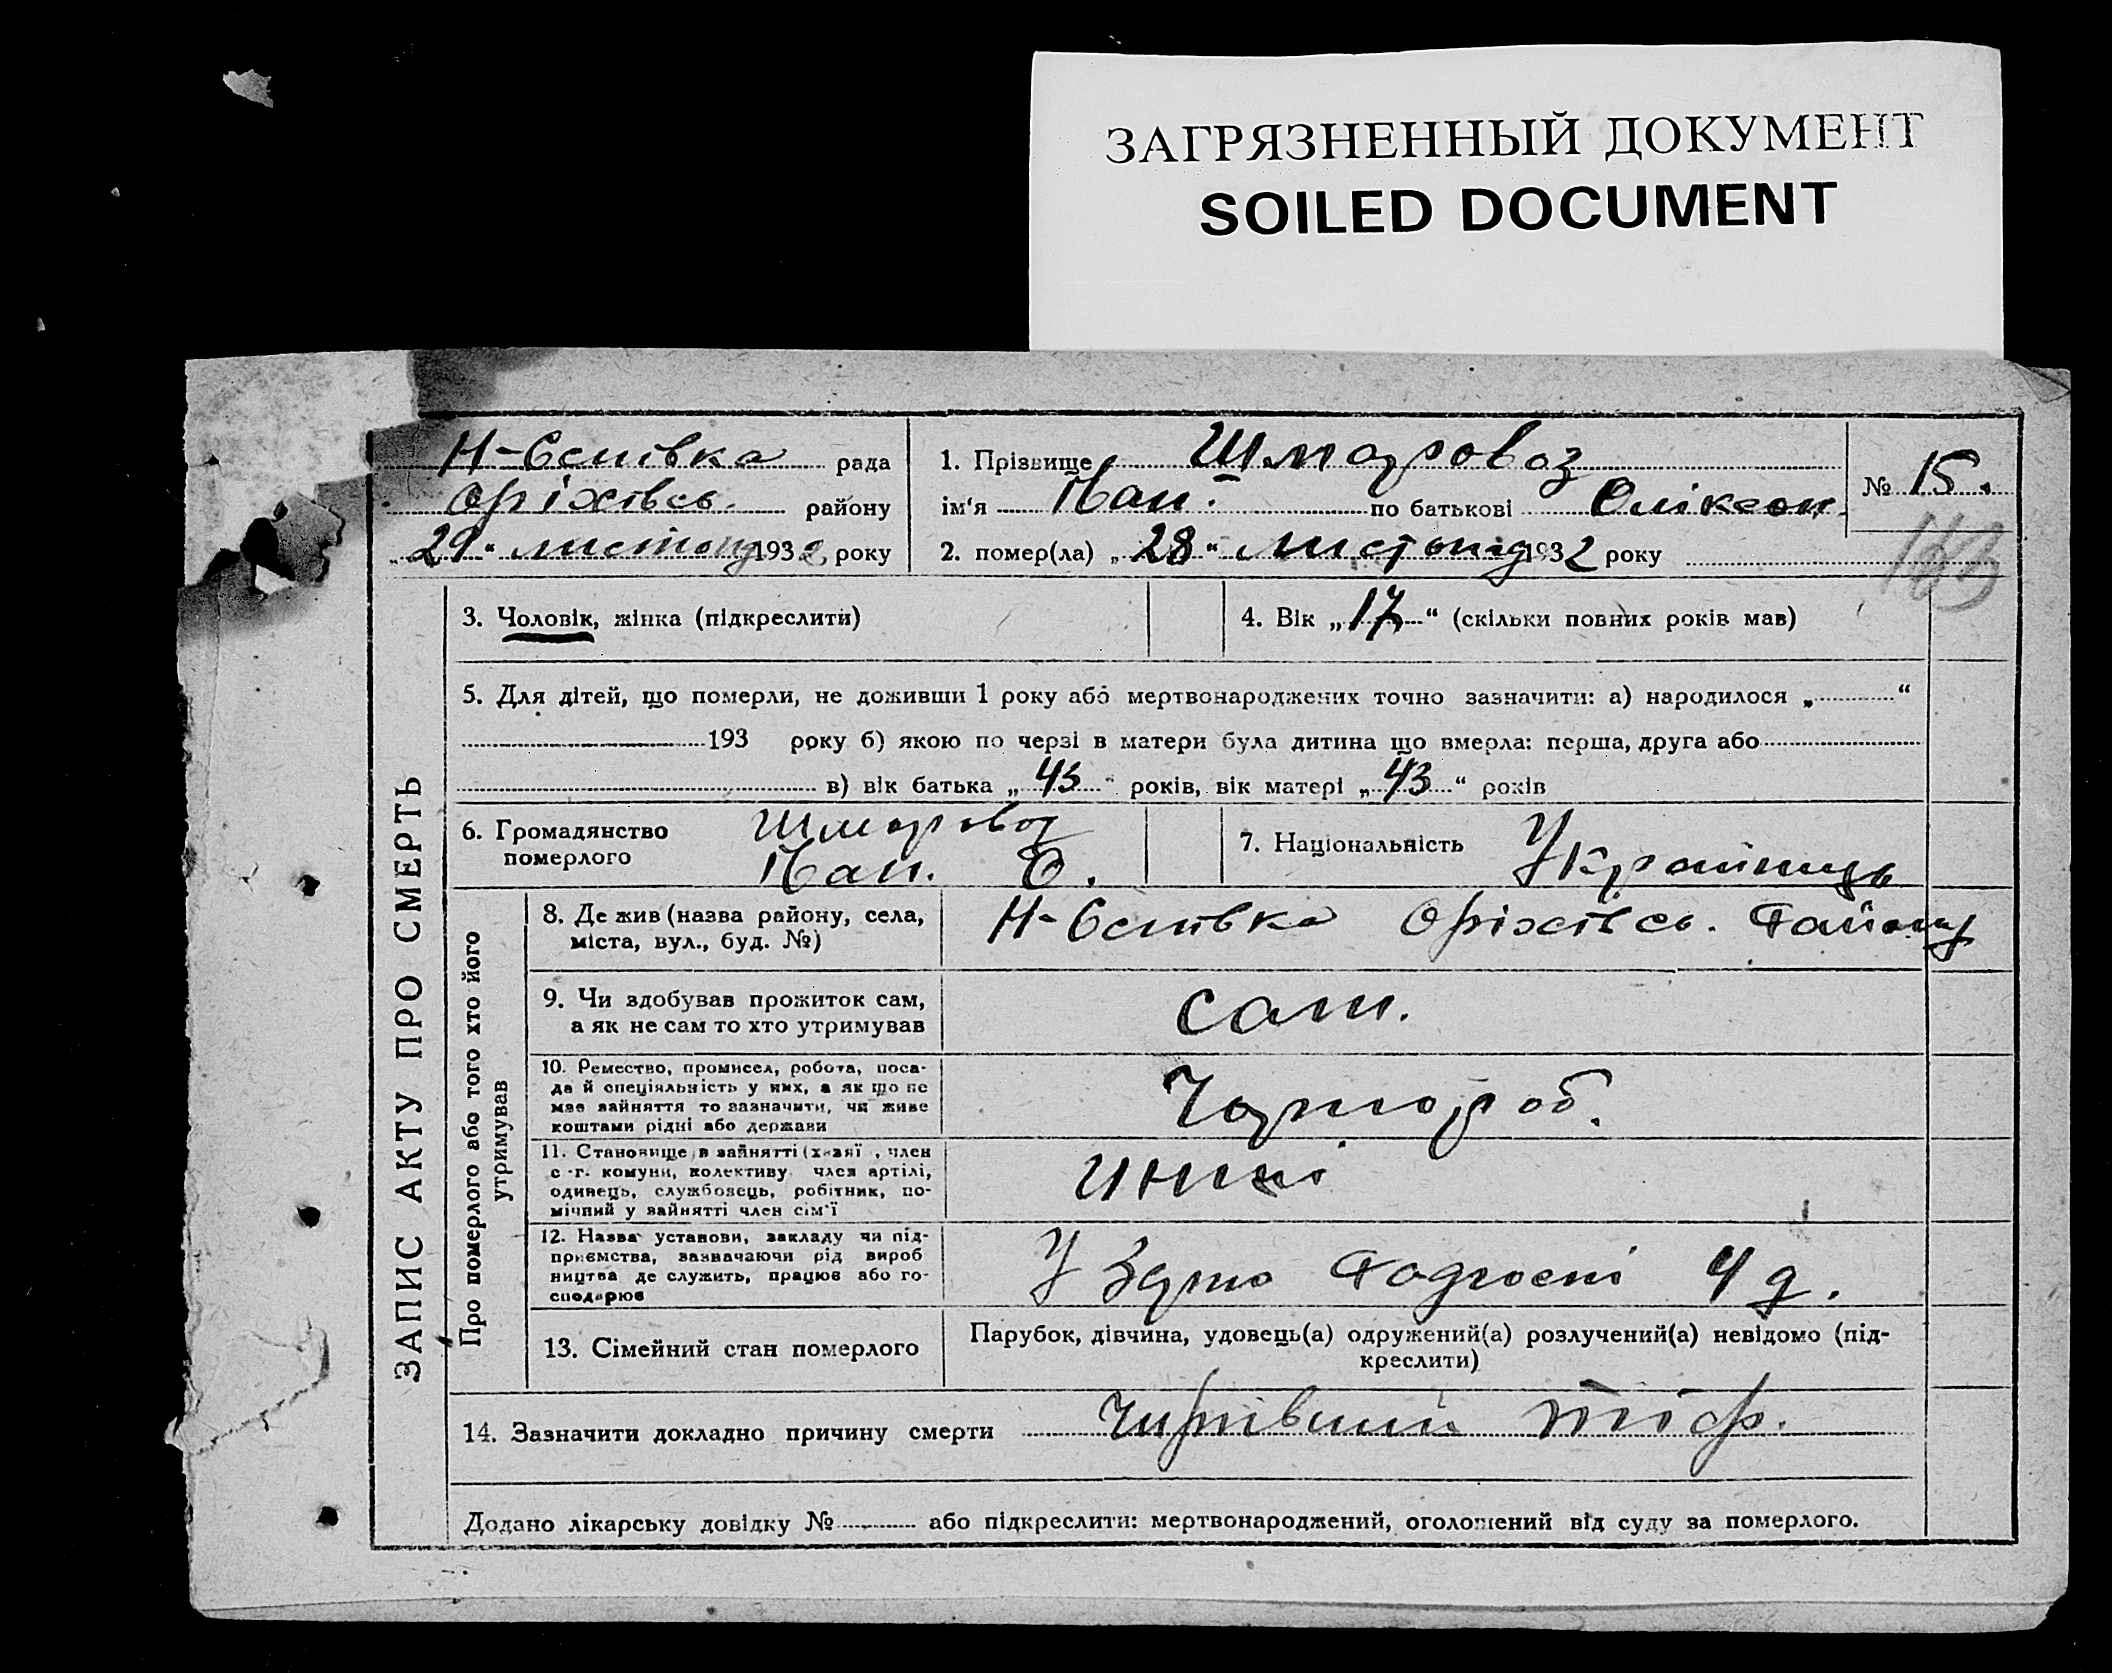 ЗАГРЯЗНЕННЫЙ ДОКУМЕНТ
SOILED DOCUMENT
Н-Єсипівка рада
Оріхівсь. району
„29“ листопад 1932 року
1. Прізвище Шмаровоз
ім‘я Іван. по батькові Оліксон.
2. помер(ла) „28“ листопад 1932 року
№ 15.
3. Чоловік, жінка (підкреслити)
4. Вік „17“ (скільки повних років мав)
5. Для дітей, що померли, не доживши 1 року або мертвонароджених точно зазначити: а) народилося „ “
193 року б) якою по черзі в матери була дитина що вмерла: перша, друга або
в) вік батька „43“ років, вік матері „43“ років
6. Громадянство померлого
Шмаровоз
Іван. О.
7. Національність Українць
ЗАПИС АКТУ ПРО СМЕРТЬ
Про померлого або того хто його
утримував
8. Де жив (назва району, села,
міста, вул., буд. №)
Н-Єсипівка Оріхівсь. Району
9. Чи здобував прожиток сам,
а як не сам то хто утримував
сам.
10. Ремество, промисел, робота, поса-
да й спеціяльність у них, а як що не
має зайняття то зазначити, чи живе
коштами рідні або держави
Чорнороб.
11. Становище в зайнятті (хазяї , член
с.-г. комуни, колективу член артілі,
одинець, службовець, робітник, по-
мічний у зайнятті член сім‘ї
12. Назва установи, закладу чи під-
приємства, зазначаючи рід вироб
ництва де служить, працює або го-
сподарює
У Радгоспі 4 д.
13. Сімейний стан померлого
Парубок, дівчина, удовець(а) одружений(а) розлучений(а) невідомо (під-
креслити)
14. Зазначити докладно причину смерти тіф.
Додано лікарську довідку № або підкреслити: мертвонароджений, оголошений від суду за померлого.